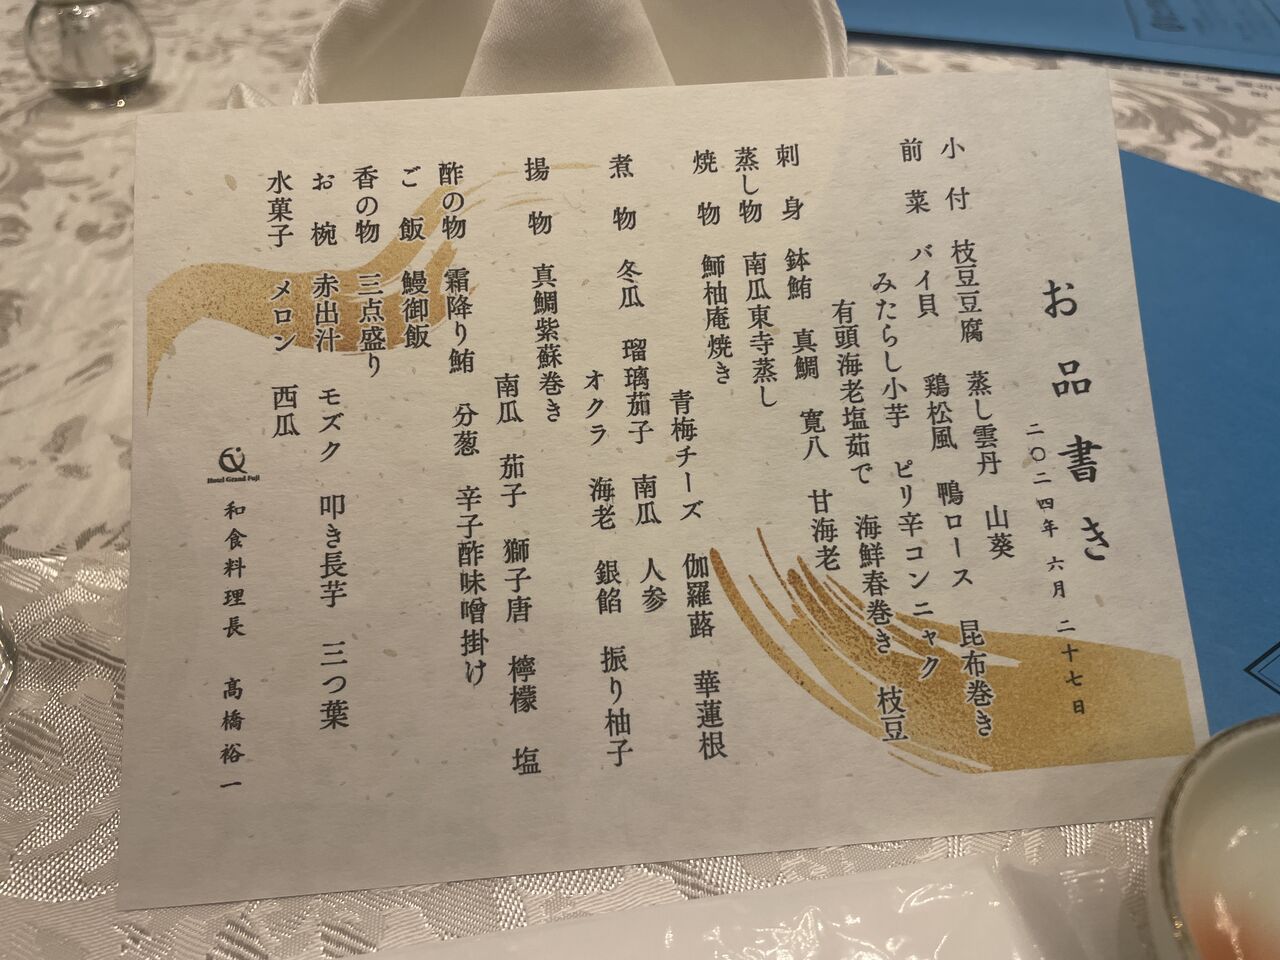 お品書き
二〇二四年 六月 二十七日
小付 枝豆豆腐 蒸し雲丹 山葵
前菜 バイ貝 鶏松風 鴨ロース 昆布巻き
みたらし小芋 ピリ辛コンニャク
有頭海老塩茹で 海鮮春巻き 枝豆
刺身 鉢鮪 真鯛 寛八 甘海老
蒸し物 南瓜東寺蒸し
焼物 鰤柚庵焼き
青梅チーズ 伽羅蕗 華蓮根
煮物 冬瓜 瑠璃茄子 南瓜 人参
オクラ 海老 銀餡 振り柚子
揚物 真鯛紫蘇巻き
南瓜 茄子 獅子唐 檸檬 塩
酢の物 霜降り鮪 分葱 辛子酢味噌掛け
ご飯 鰻御飯
香の物 三点盛り
お椀 赤出汁 モズク 叩き長芋 三つ葉
水菓子 メロン 西瓜
Hotel Grand Fuji
和食料理長 髙橋裕一